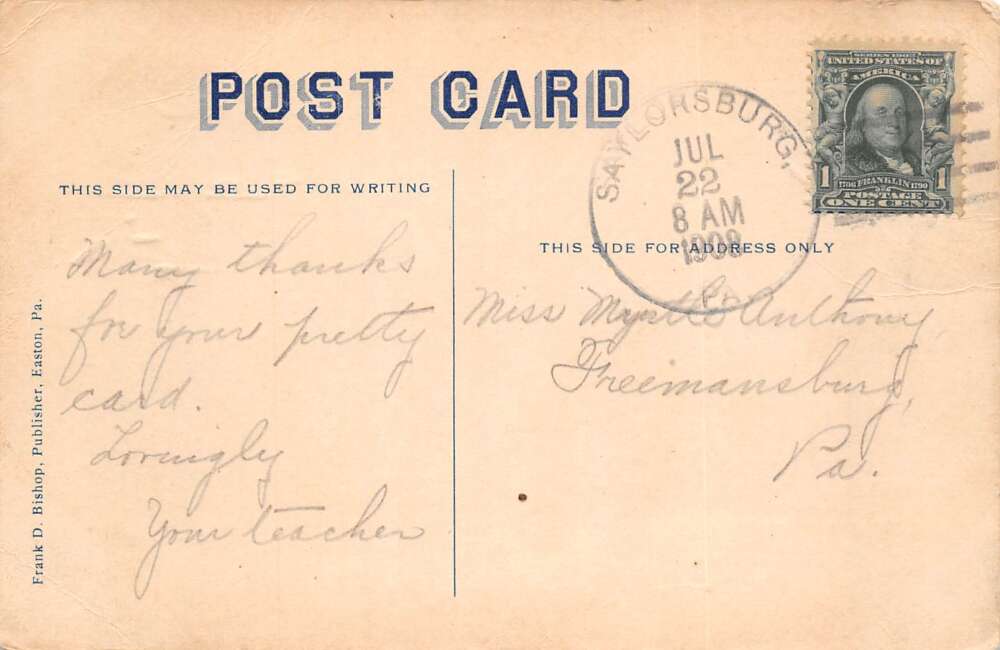 POST CARD
THIS SIDE MAY BE USED FOR WRITING
Many thanks
for your pretty
card.
Lovingly
Your teacher
Frank D. Bishop, Publisher, Easton, Pa.
SAYLORSBURG,
JUL
22
8 AM
1908
PA
SERIES 1902
UNITED STATES OF
AMERICA
1706 FRANKLIN 1790
1 POSTAGE 1
ONE CENT
THIS SIDE FOR ADDRESS ONLY
Miss Myrtle Anthony,
Freemansburg,
Pa.